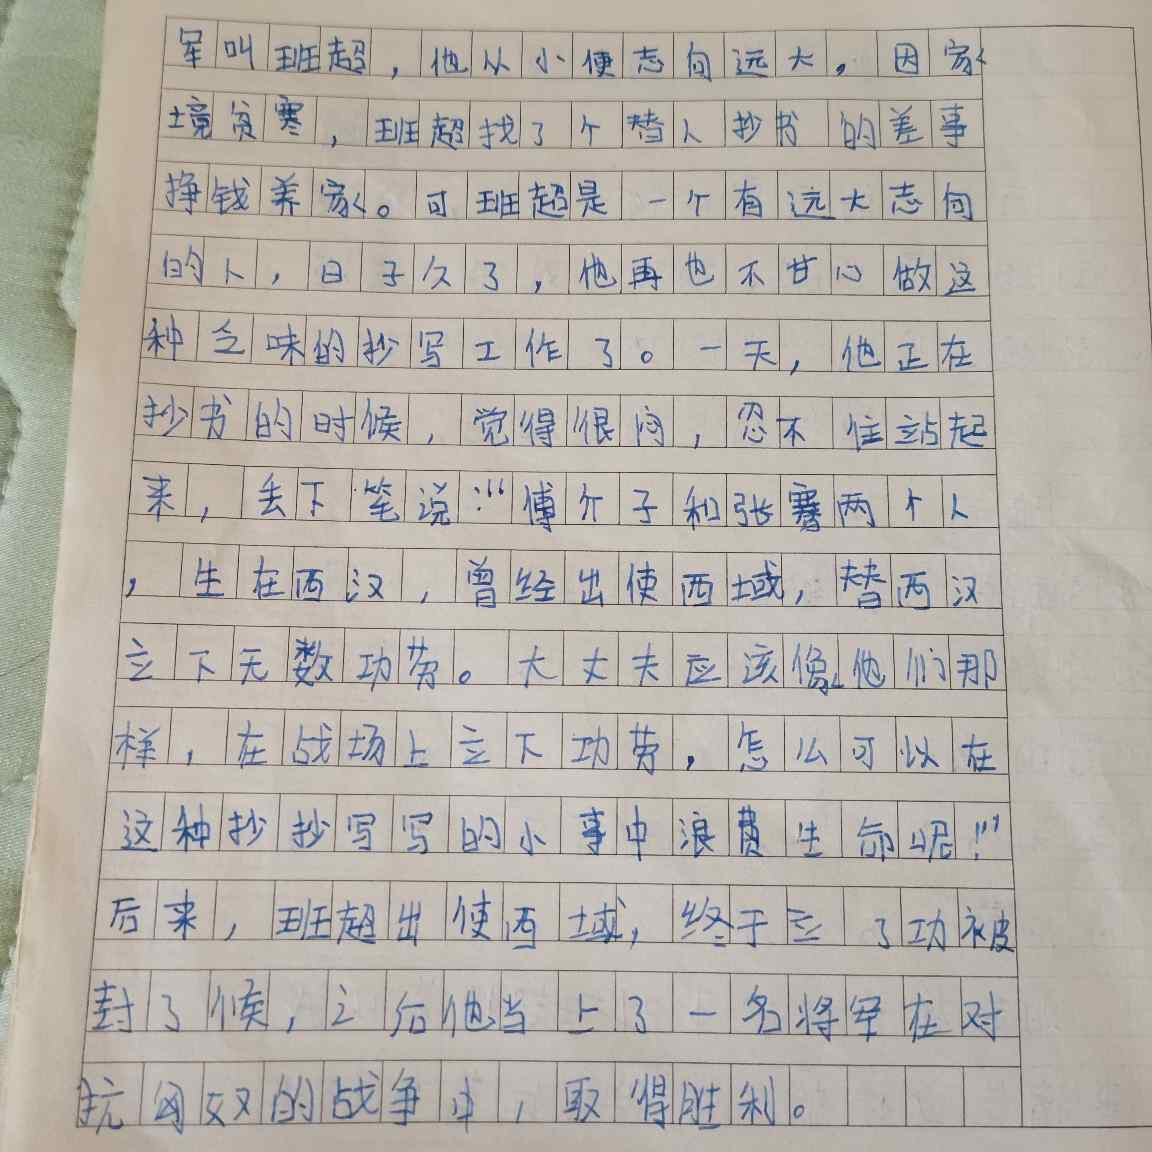 军叫班超，他从小便志向远大。因家
境贫寒，班超找了个替人抄书的差事
挣钱养家。可班超是一个有远大志向
的人，日子久了，他再也不甘心做这
种乏味的抄写工作了。一天，他正在
抄书的时候，觉得很闷，忍不住站起
来，丢下笔说：“傅介子和张骞两个人
，生在西汉，曾经出使西域，替西汉
立下无数功劳。大丈夫应该像他们那
样，在战场上立下功劳，怎么可以在
这种抄抄写写的小事中浪费生命呢！”
后来，班超出使西域，终于立了功被
封了候，之后他当上了一名将军在对
抗匈奴的战争中，取得胜利。